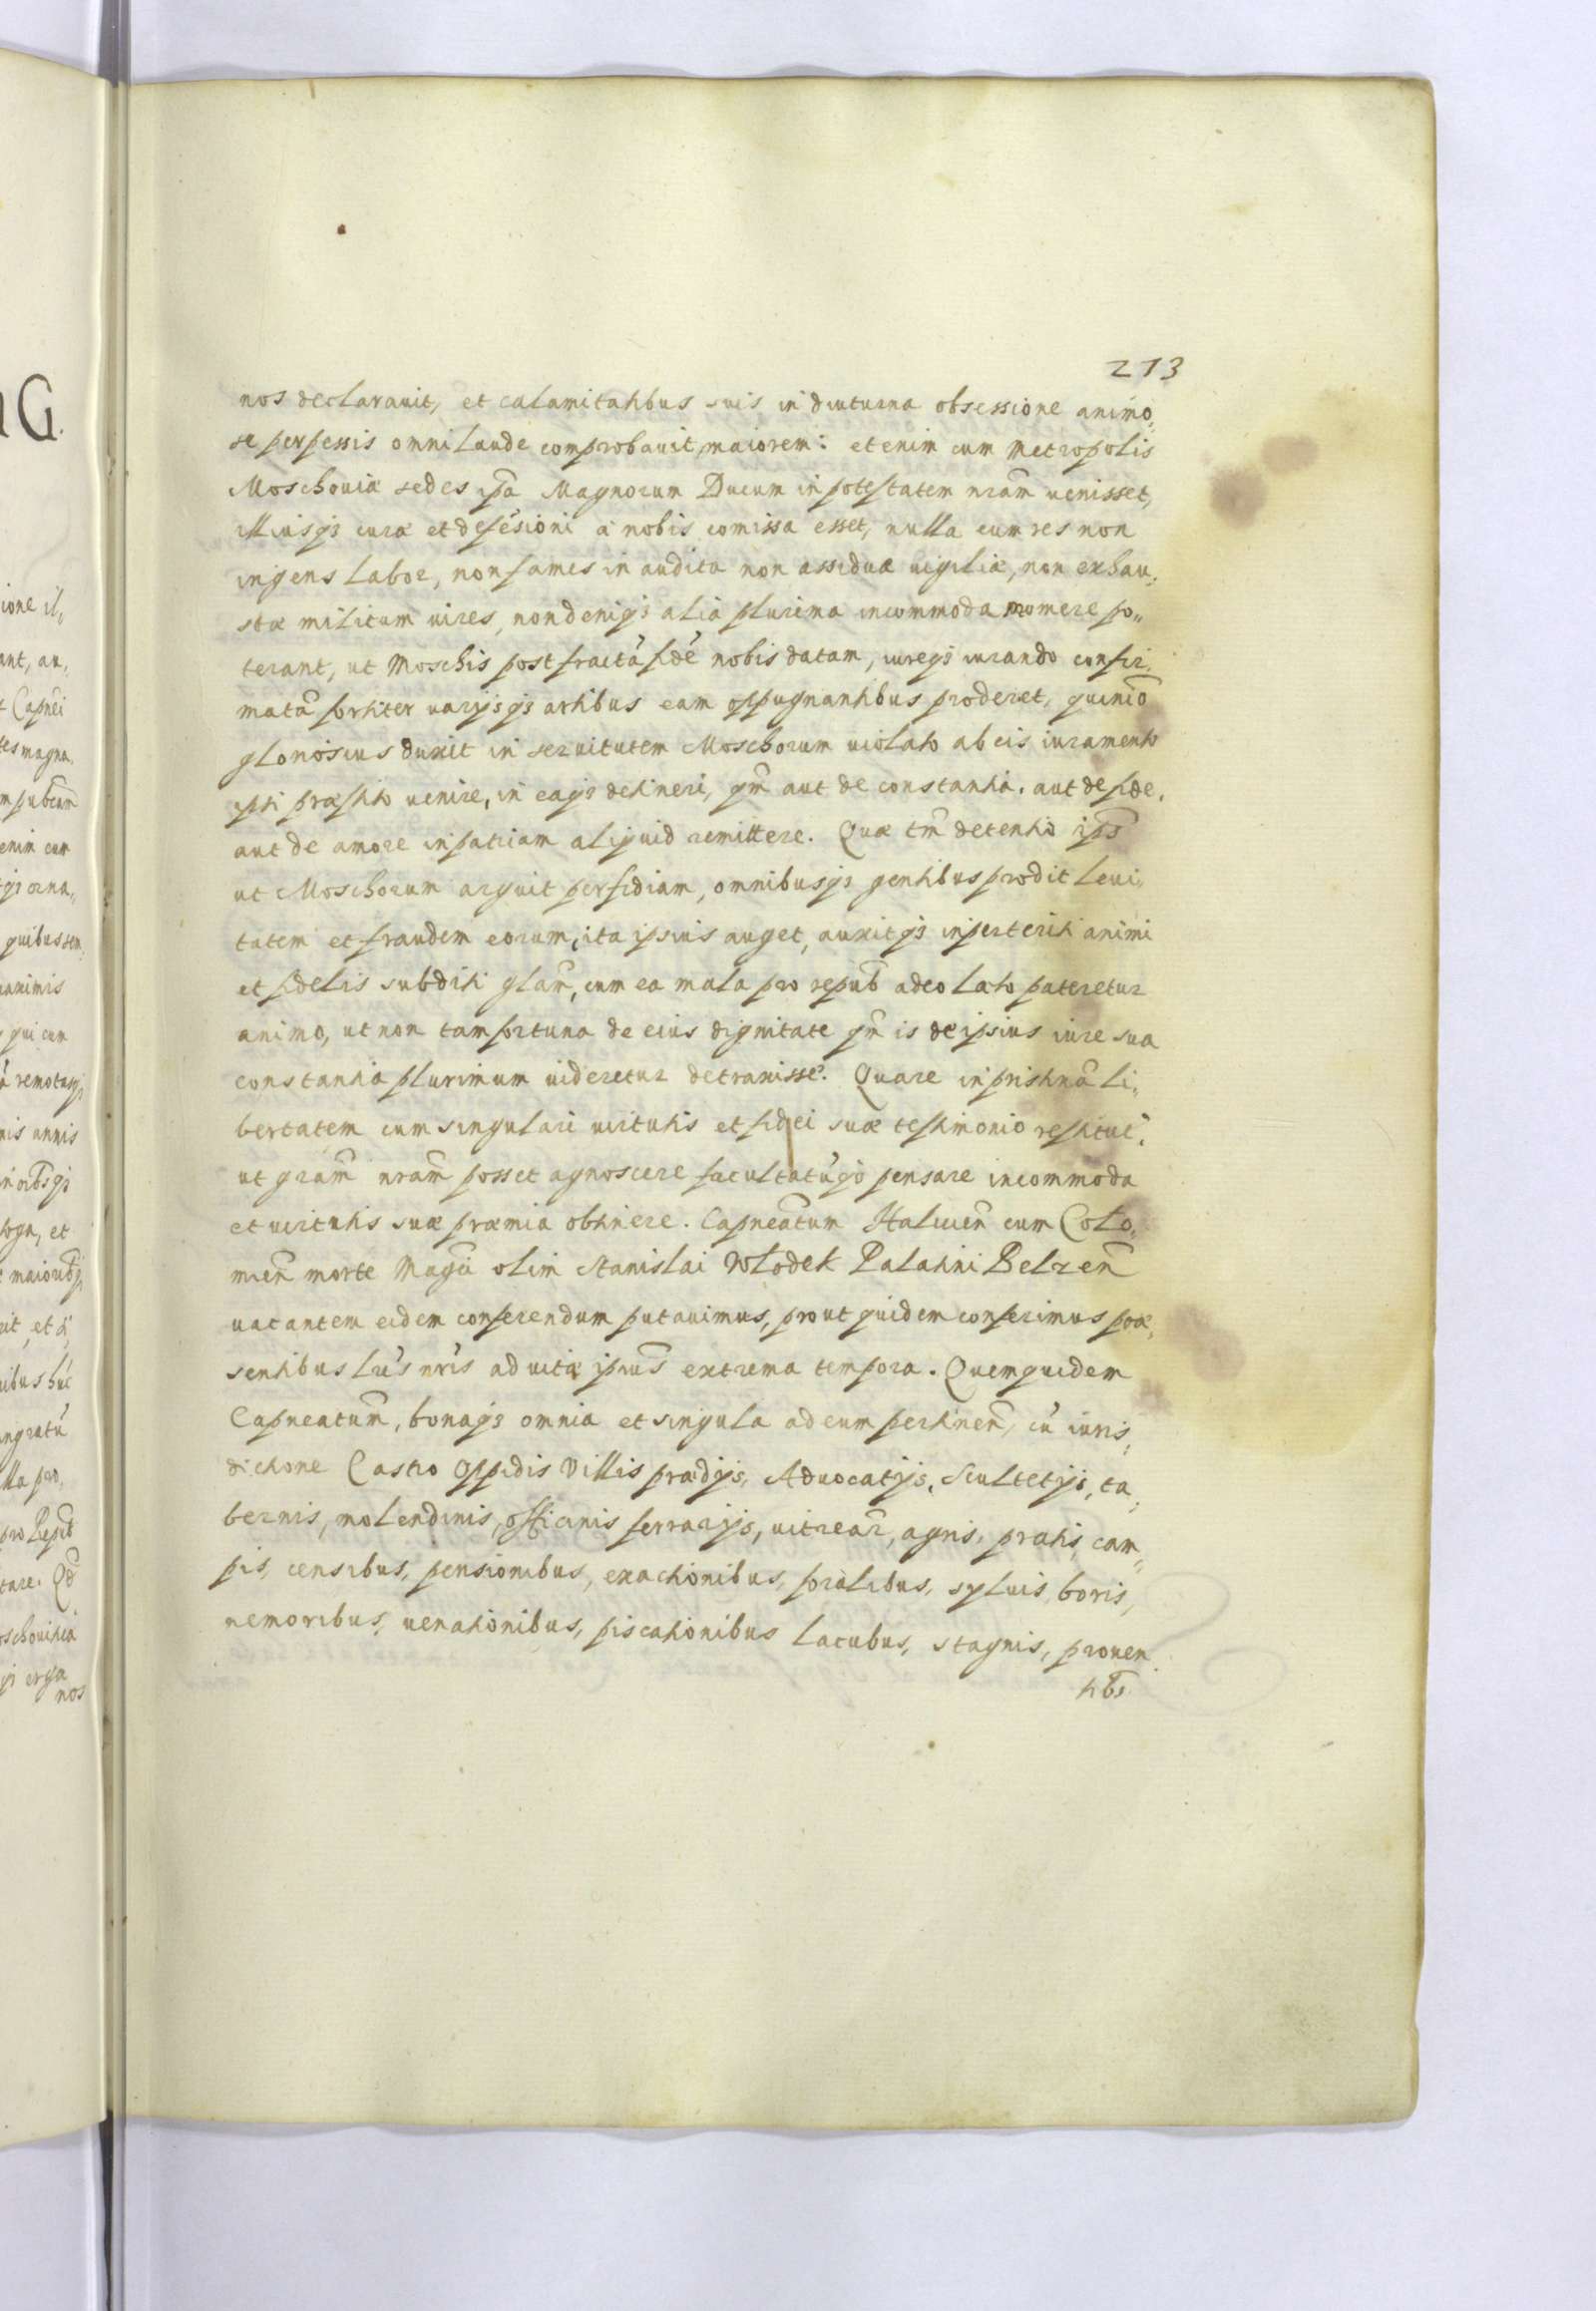 213
nos declarauit, et calamitatibus suis in diuturna obsessione animo„
se perpessis omni laude comprobauit, maiorem: etenim cum Metropolis
Moschouiæ sedes ip̃a Magnorum Ducum in potestatem nr̃am uenisset,
illiusq3 curæ et defẽsioni à nobis comissa esset, nulla eum res non
ingens labor, non fames in audita non assiduæ uigiliæ, non exhau„
stæ militum uires, non deniq3 alia plurima incommoda momere po„
terant, ut Moschis post fractã fidẽ nobis datam, iureq3 iurando confir„
matã fortiter uarijsq3 artibus eam oppugnantibus proderet, quinið
gloriosius duxit in seruitutem Moschorum uiolato ab eis iuramento
ipsi præstito uenire, in eaq3 detineri, qm̃ aut de constantia, aut de fide,
aut de amore in patriam aliquid remittere. Quæ tm̃ detentio ip̃s
ut Moschorum arguit perfidiam, omnibusq3 gentibus prodit leui„
tatem et fraudem eorum, ita ipsius auget, auxitq3 inperteriti animi
et fidelis subditi glam̃, cum ea mala pro repub̃ adeo lato pateretur
animo, ut non tam fortuna de eius dignitate qm̃ is de ipsius iure sua
constantia plurimum uideretur detraxisse. Quare in pristinã li„
bertatem cum singulari uirtutis et fidei suæ testimonio restitui,
ut gram̃ nram̃ posset agnoscere facultatũq3 pensare incommoda
et uirtutis suæ præmia obtinere. Capneatum̃ Halicien̄ cum Colo„
mien̄ morte Mag̃ci olim Stanislai Wlodek Palatini Belzen̄
uacantem eidem conferendum putauimus, prout quidem conferimus præ„
sentibus lr̃is nr̃is ad uitæ ipius̃ extrema tempora. Quemquidem
Capneatum̃, bonaq3 omnia et singula ad eum pertinen̄, cũ iuris„
dictione Castro Oppidis Villis prædijs, Aduocatijs, Scultetijs, ta„
bernis, molendinis, officinis ferrarijs, uitrear̃, agris, pratis, cam„
pis, censibus, pensionibus, exactionibus, pratibus, syluis, boris,
nemoribus, uenationibus, piscationibus lacubus, stagnis, prouen„
tib̃s